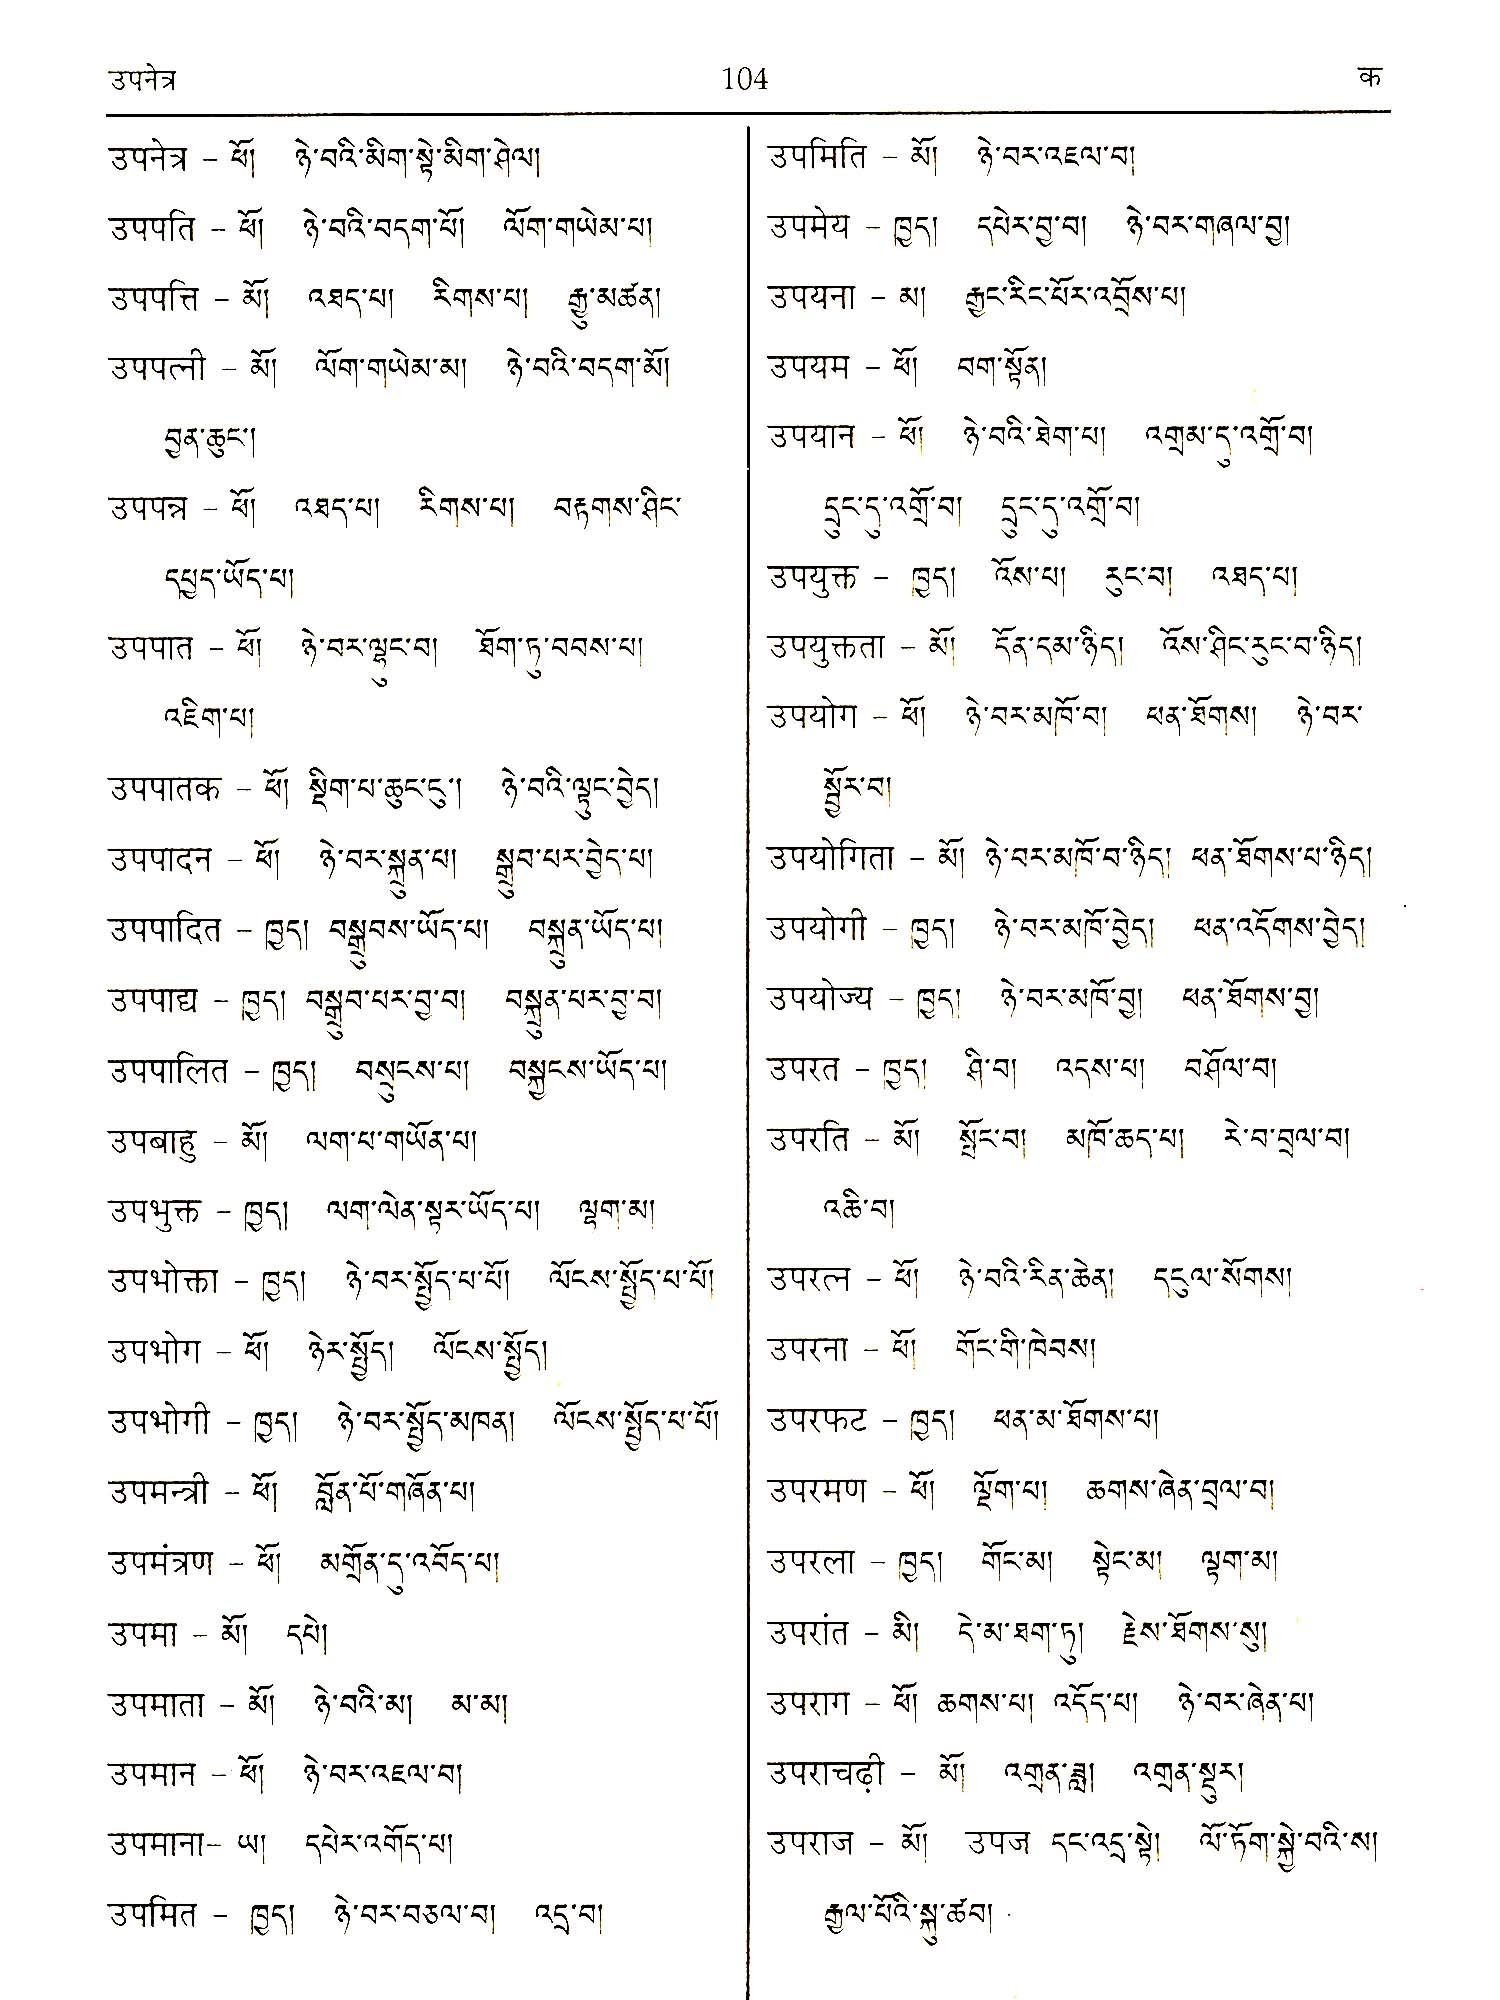 उपनेत्र 104 क
उपनेत्र – ཕོ། ཉེ་བའི་མིག་སྟེ་མིག་ཤེལ།
उपपति – ཕོ། ཉེ་བའི་བདག་པོ། ལོག་གཡེམ་པ།
उपपत्ति – མོ། འཐད་པ། རིགས་པ། རྒྱུ་མཚན།
उपपत्नी – མོ། ལོག་གཡེམ་མ། ཉེ་བའི་བདག་མོ།
བྱན་ཆུང་།
उपपन्न – ཕོ། འཐད་པ། རིགས་པ། བརྟགས་ཤིང་
དཔྱད་ཡོད་པ།
उपपात – ཕོ། ཉེ་བར་ལྷུང་བ། ཐོག་ཏུ་བབས་པ།
འཇིག་པ།
उपपातक – ཕོ། སྡིག་པ་ཆུང་ངུ་། ཉེ་བའི་ལྟུང་བྱེད།
उपपादन – ཕོ། ཉེ་བར་སྐྲུན་པ། སྒྲུབ་པར་བྱེད་པ།
उपपादित – ཁྱད། བསྒྲུབས་ཡོད་པ། བསྐྲུན་ཡོད་པ།
उपपाद्य – ཁྱད། བསྒྲུབ་པར་བྱ་བ། བསྐྲུན་པར་བྱ་བ།
उपपालित – ཁྱད། བསྲུངས་པ། བསྐྱངས་ཡོད་པ།
उपबाहु – མོ། ལག་པ་གཡོན་པ།
उपभुक्त – ཁྱད། ལག་ལེན་སྟར་ཡོད་པ། ལྷག་མ།
उपभोक्ता – ཁྱད། ཉེ་བར་སྤྱོད་པ་པོ། ལོངས་སྤྱོད་པ་པོ།
उपभोग – ཕོ། ཉེར་སྤྱོད། ལོངས་སྤྱོད།
उपभोगी – ཁྱད། ཉེ་བར་སྤྱོད་མཁན། ལོངས་སྤྱོད་པ་པོ།
उपमन्त्री – ཕོ། བློན་པོ་གཞོན་པ།
उपमंत्रण – ཕོ། མགྲོན་དུ་འབོད་པ།
उपमा – མོ། དཔེ།
उपमाता – མོ། ཉེ་བའི་མ། མ་མ།
उपमान – ཕོ། ཉེ་བར་འཇལ་བ།
उपमाना– ཡ། དཔེར་འགོད་པ།
उपमित – ཁྱད། ཉེ་བར་བཅལ་བ། འདྲ་བ།
उपमिति – མོ། ཉེ་བར་འཇལ་བ།
उपमेय – ཁྱད། དཔེར་བྱ་བ། ཉེ་བར་གཞལ་བྱ།
उपयना – མ། རྒྱང་རིང་པོར་འབྲོས་པ།
उपयम – ཕོ། བག་སྟོན།
उपयान – ཕོ། ཉེ་བའི་ཐེག་པ། འགྲམ་དུ་འགྲོ་བ།
དྲུང་དུ་འགྲོ་བ། དྲུང་དུ་འགྲོ་བ།
उपयुक्त – ཁྱད། འོས་པ། རུང་བ། འཐད་པ།
उपयुक्तता – མོ། དོན་དམ་ཉིད། འོས་ཤིང་རུང་བ་ཉིད།
उपयोग – ཕོ། ཉེ་བར་མཁོ་བ། ཕན་ཐོགས། ཉེ་བར་
སྦྱོར་བ།
उपयोगिता – མོ། ཉེ་བར་མཁོ་བ་ཉིད། ཕན་ཐོགས་པ་ཉིད།
उपयोगी – ཁྱད། ཉེ་བར་མཁོ་བྱེད། ཕན་འདོགས་བྱེད།
उपयोज्य – ཁྱད། ཉེ་བར་མཁོ་བྱ། ཕན་ཐོགས་བྱ།
उपरत – ཁྱད། ཤི་བ། འདས་པ། བཤོལ་བ།
उपरति – མོ། སྤོང་བ། མཁོ་ཆད་པ། རེ་བ་བྲལ་བ།
འཆི་བ།
उपरत्न – ཕོ། ཉེ་བའི་རིན་ཆེན། དངུལ་སོགས།
उपरना – ཕོ། གོང་གི་ཁེབས།
उपरफट – ཁྱད། ཕན་མ་ཐོགས་པ།
उपरमण – ཕོ། ལྡོག་པ། ཆགས་ཞེན་བྲལ་བ།
उपरला – ཁྱད། གོང་མ། སྟེང་མ། ལྟག་མ།
उपरांत – མི། དེ་མ་ཐག་ཏུ། རྗེས་ཐོགས་སུ།
उपराग – ཕོ། ཆགས་པ། འདོད་པ། ཉེ་བར་ཞེན་པ།
उपराचढ़ी – མོ། འགྲན་ཟླ། འགྲན་སྡུར།
उपराज – མོ། उपज དང་འདྲ་སྟེ། ལོ་ཏོག་སྐྱེ་བའི་ས།
རྒྱལ་པོའི་སྐུ་ཚབ།